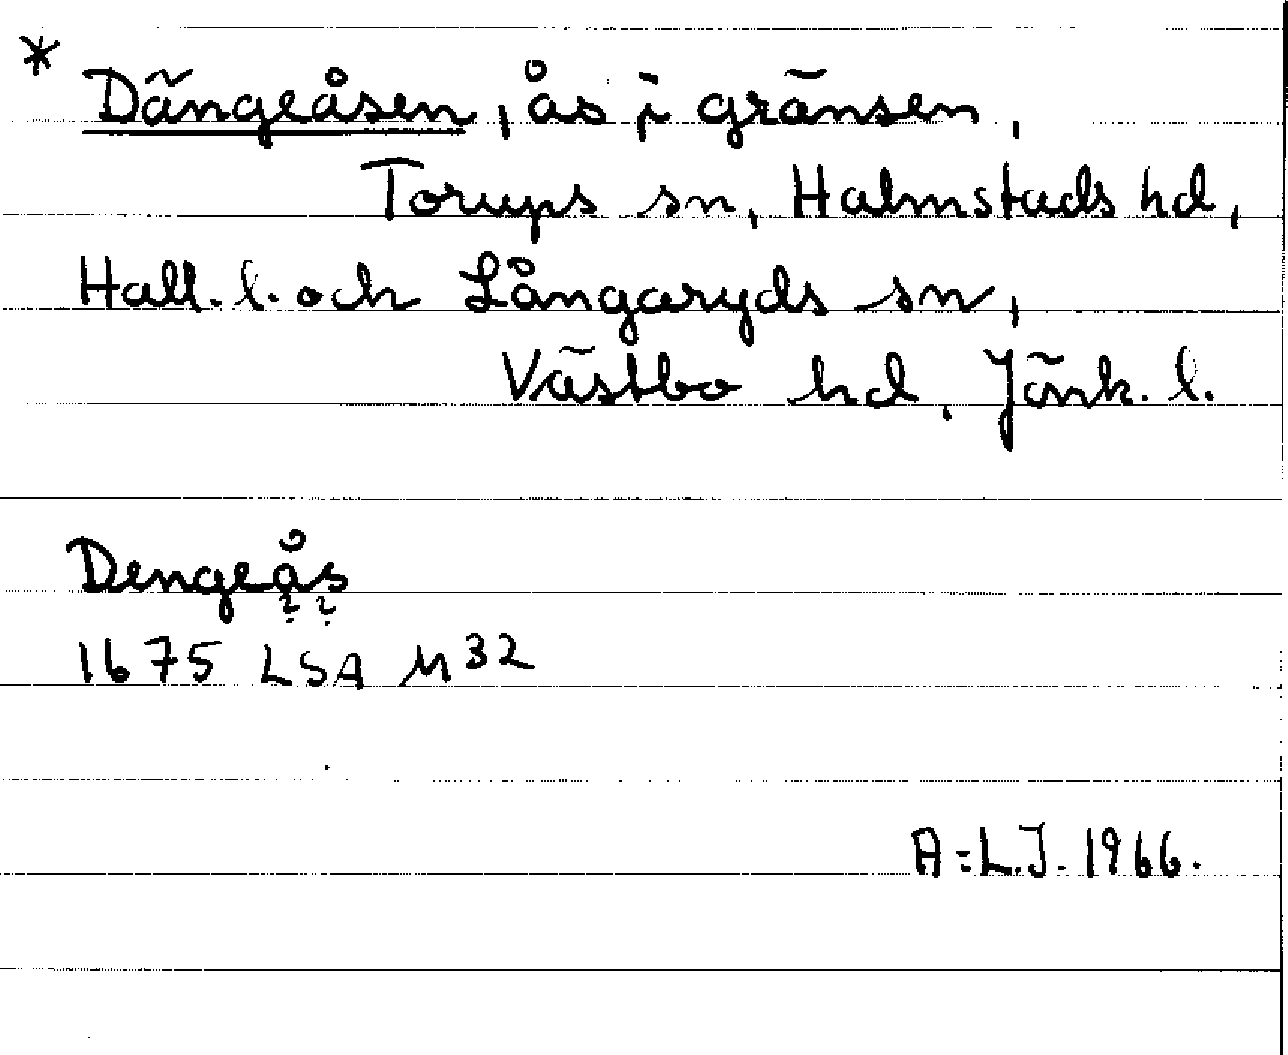 * Dängeåsen, ås i gränsen,
Torups sn, Halmstads hd,
Hall. l. och Långaryds sn,
Västbo hd, Jönk. l.
Dengeås
? ?
1675 LSA M32
A:L.J. 1966.